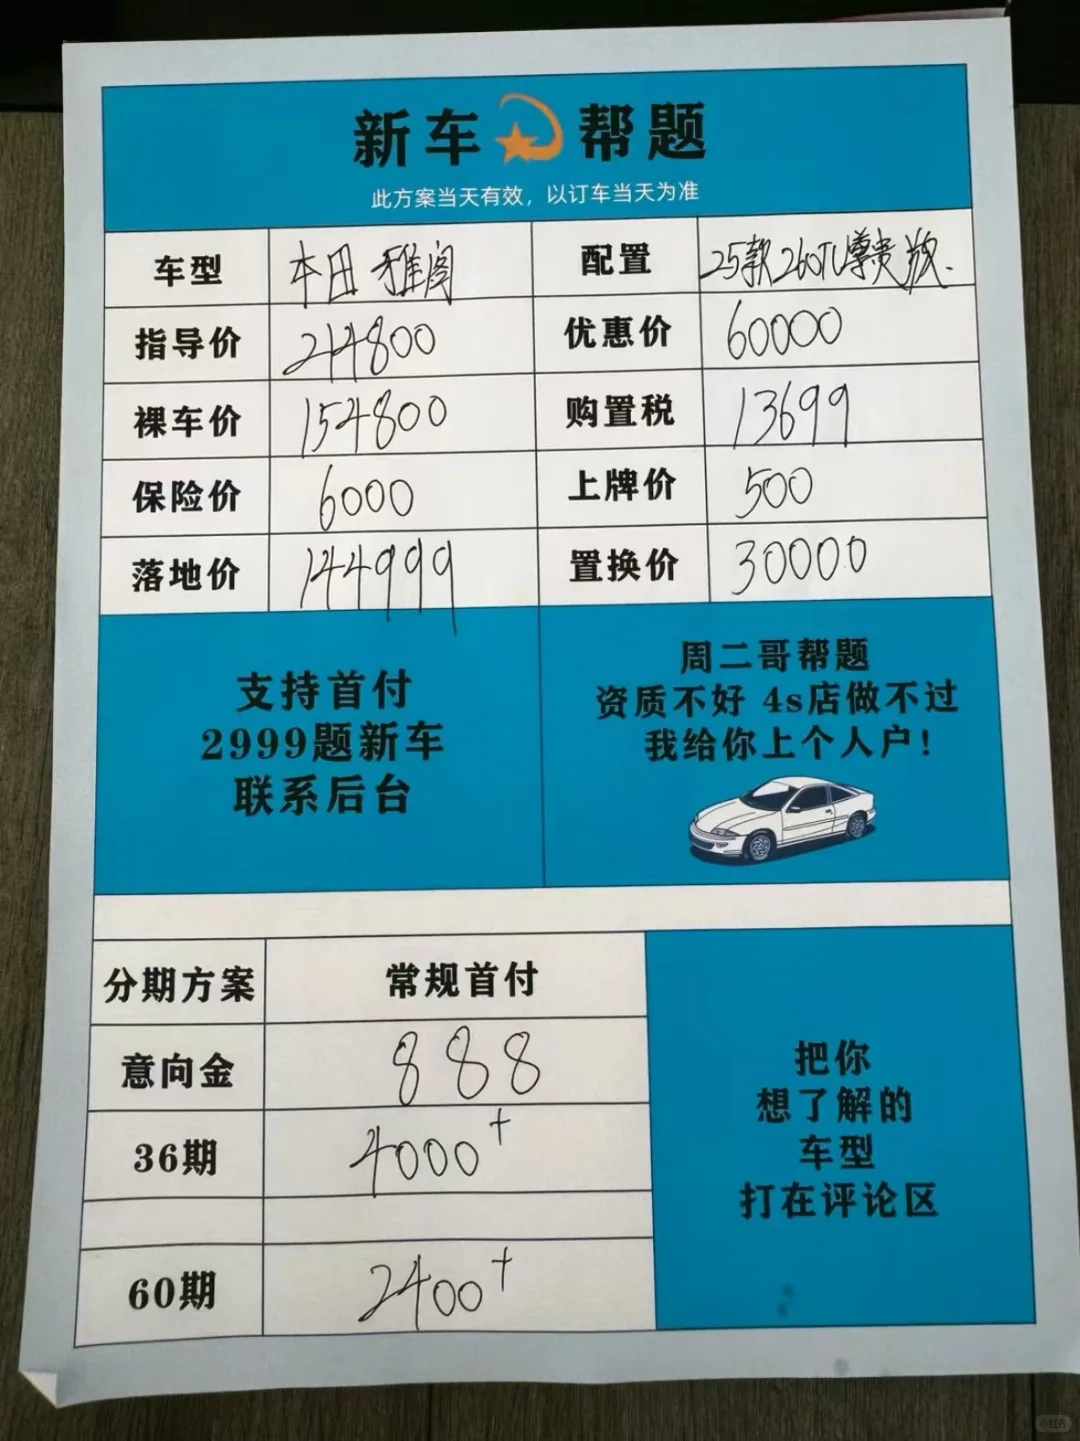 新车 帮题
此方案当天有效，以订车当天为准
车型 本田 雅阁 配置 25款260TU尊贵版.
指导价 214800 优惠价 60000
裸车价 154800 购置税 13699
保险价 6000 上牌价 500
落地价 144999 置换价 30000
支持首付
2999题新车
联系后台
周二哥帮题
资质不好 4s店做不过
我给你上个人户！
分期方案 常规首付
意向金 888
36期 4000+
60期 2400+
把你
想了解的
车型
打在评论区
小红书